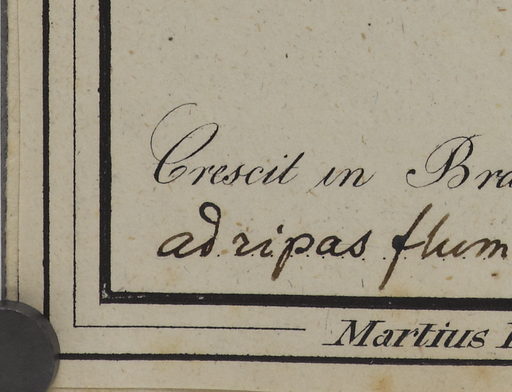 Crescit in Bra
ad ripas flum
Martius